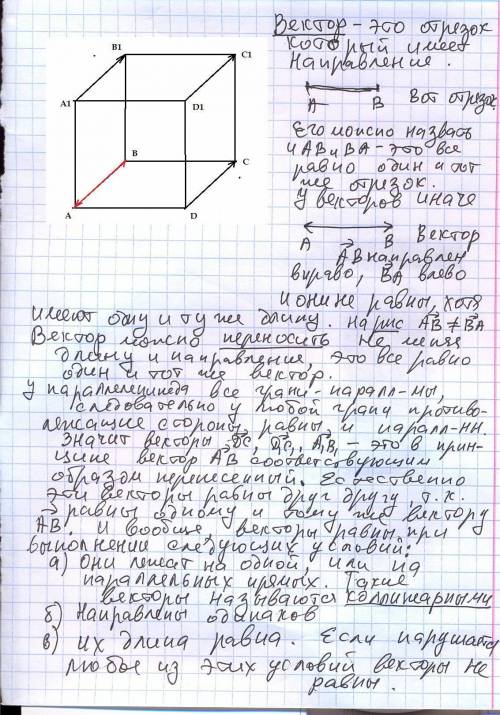 B1
C1
A1
D1
B
C
A
D
Вектор - это отрезок
который имеет
направление.
A B Вот отрезок.
Его можно назвать
и AB и BA - это все
равно один и тот
же отрезок.
У векторов иначе
A B Вектор
AB направлен
вправо, BA влево
и они не равны, хотя
имеют одну и ту же длину. На рис AB ≠ BA
Вектор можно переносить не меняя
длину и направление, это все равно
один и тот же вектор.
У параллелепипеда все грани - паралл-мы,
следовательно у любой грани противо-
лежащие стороны, равны, и паралл-ны.
Значит векторы DC, D₁C₁, A₁B₁ - это в прин-
ципе вектор AB соответствующим
образом перенесенный. Естественно
эти векторы равны друг другу, т.к.
равны одному и тому же вектору
AB. И вообще, векторы равны при
выполнении следующих условий:
а) Они лежат на одной, или на
параллельных прямых. Такие
векторы называются коллинарными
б) Направлены одинаков
в) их длина равна. Если нарушается
любое из этих условий векторы не
равны.